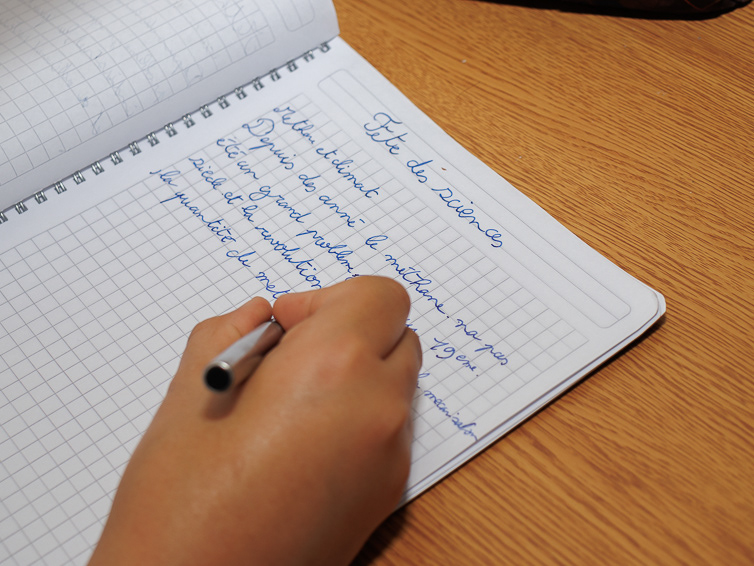 Fête des sciences
Methan et climat
Depuis des anné le méthane. na pas
été un grand problem 19eme.
siecle et la revolution
la quantité de met